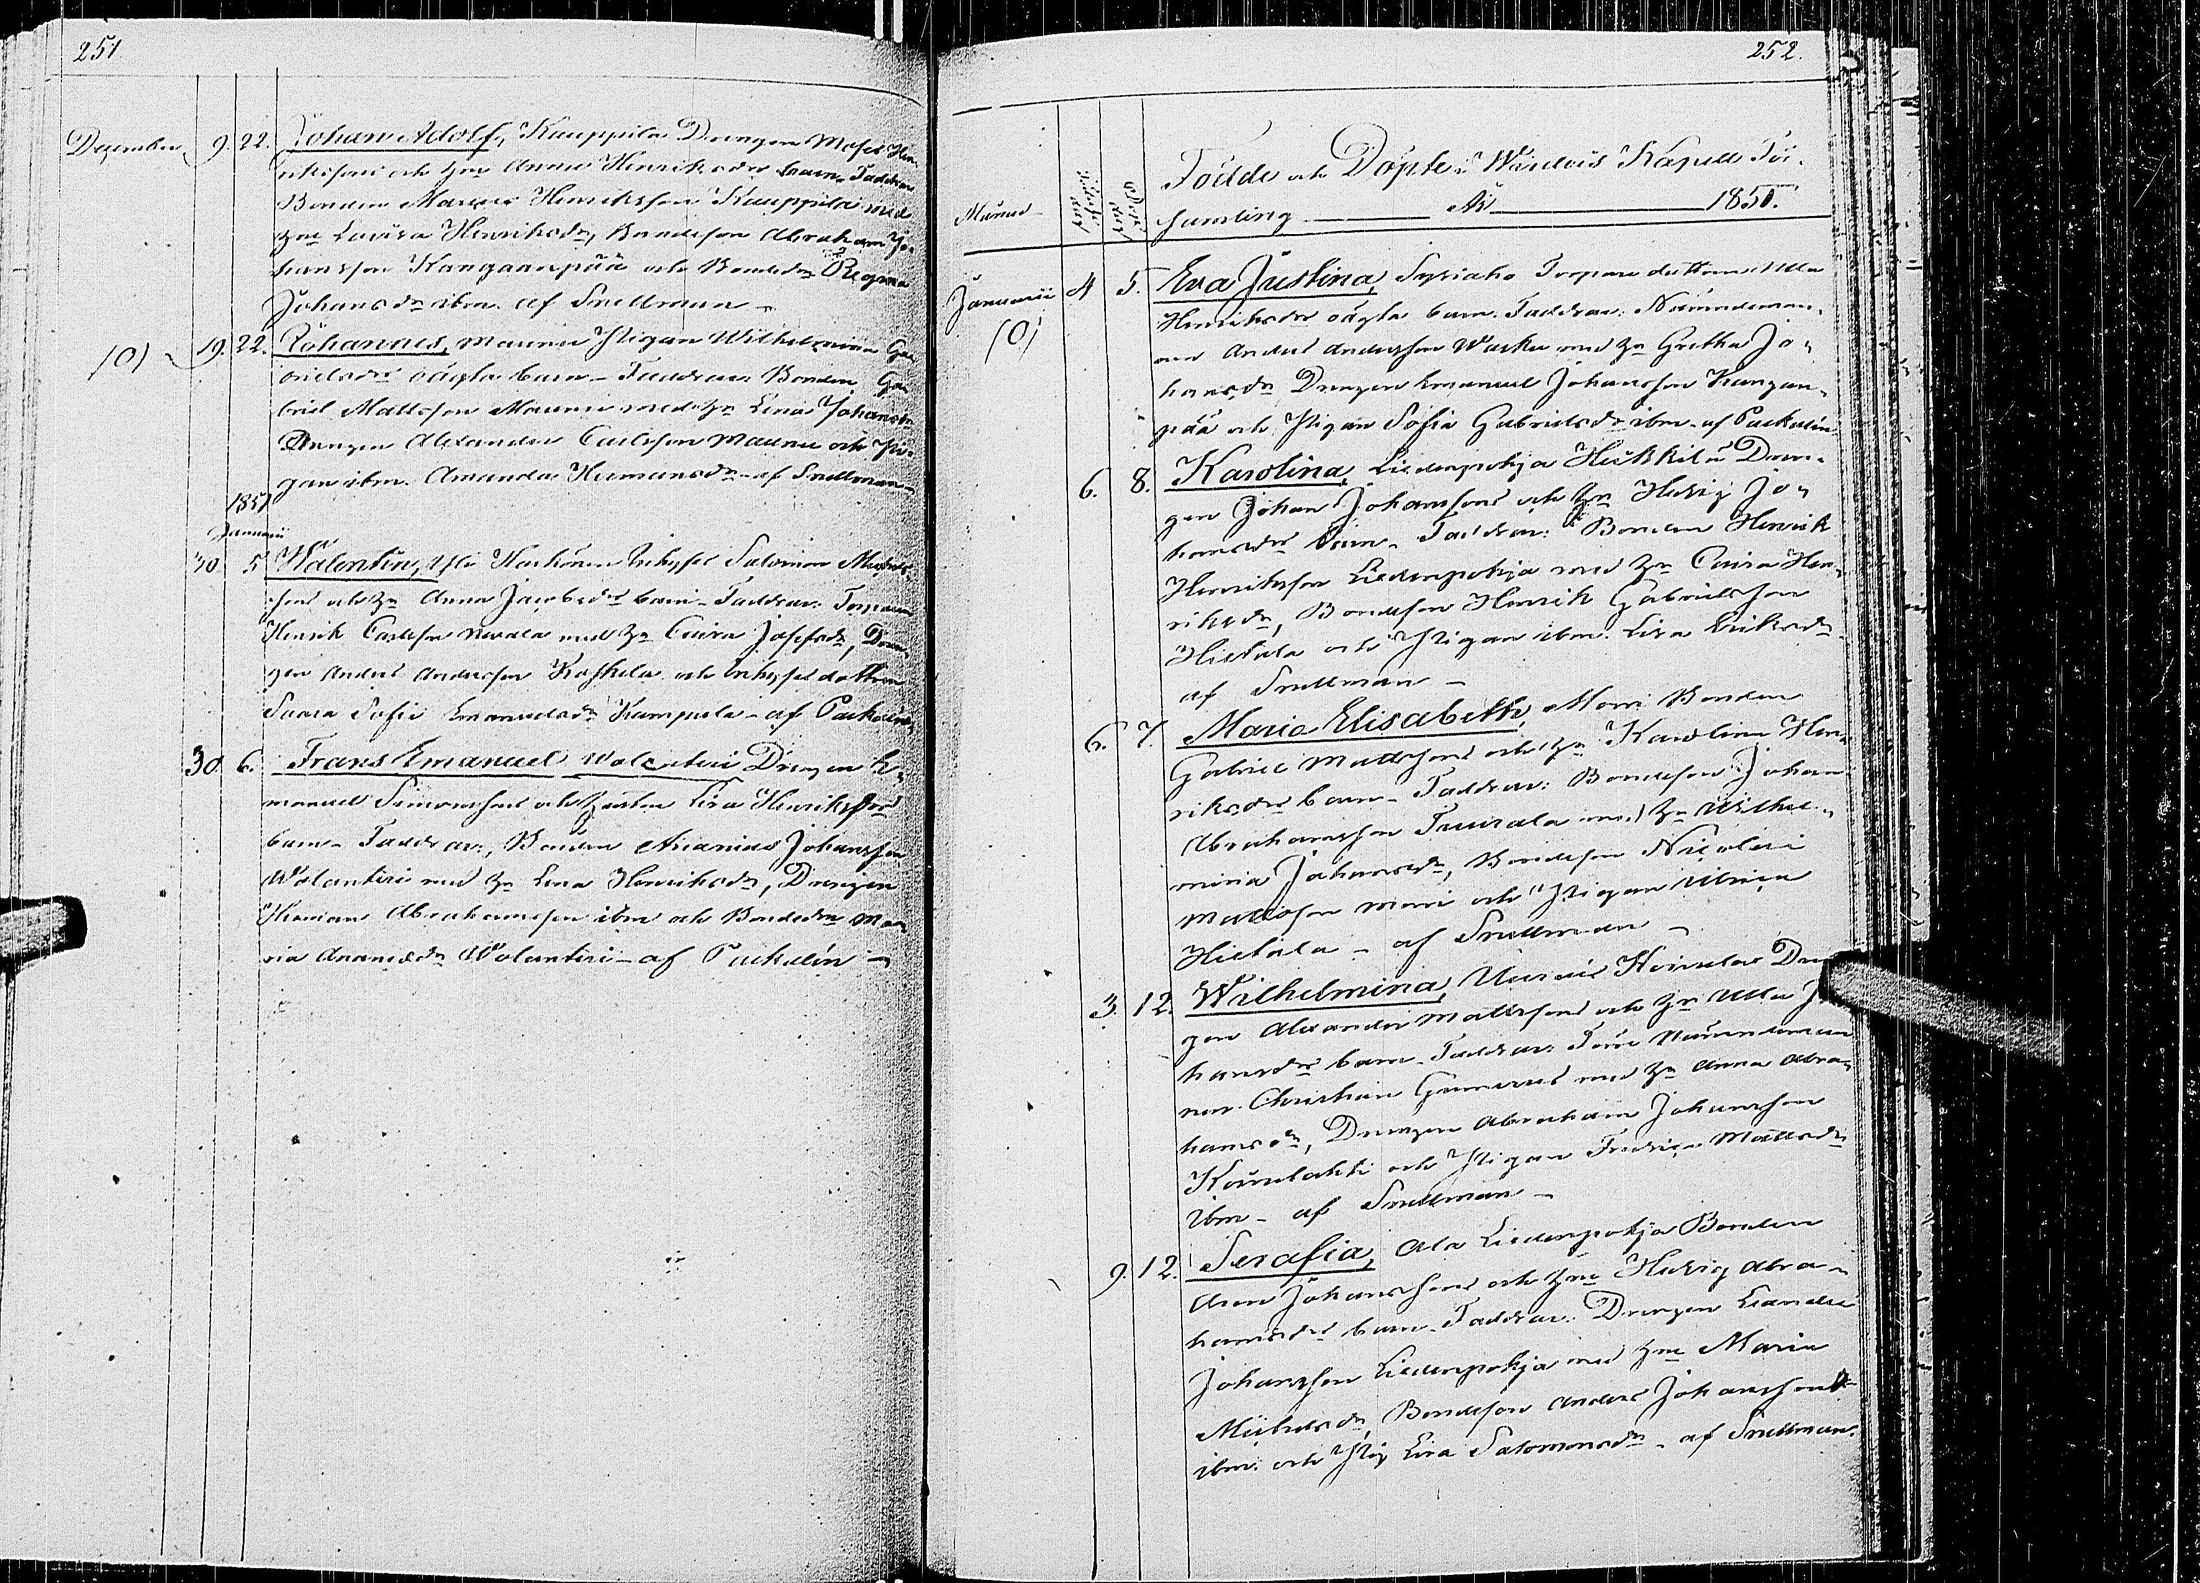 251
December 9. 22. Johan Adolf, Kauppila Drängen Moses Hen,
rikssons och hns Anna Henriksdrs barn. Faddrar
Bonden Henriksson Kauppila med
hn Lovisa Henriksdr, Bondeson Abraham Jo,
hansson Kangaanpää och Bondedr Regina
Johansdr ibm. af Snellman
(O) 19. 22. Johannes, Maunu Pigan Wilhelmina Ga,
brielsdrs oägta barn - Faddrar: Bonden Ga,
briel Mattsson Maunu med hn Lena Johansdr
Drängen Alexander Carlsson Maunu och Pi,
gan ibm. Amanda Hermansdr - af Snellman
1851
Januarii
30 5 Walentin, Salomon
sons och hn Anna Jacobsdrs barn - Faddrar:
Henrik Carlsson med hn Caisa Josefsdr, Drän,
gen Anders Andersson Koskela och dottren
Sofia Emanuelsdr - af Packalén
30 6. Frans Emanuel Wolantiri Drängen E,
manuel Simonssons och hustru Lisa Henriksdrs
barn - Faddrar, Bonden Ananias Johansson
Wolantiri med hn Lena Henriksdr, Drängen
Herman Abrahamsson ibm och Bondedr Ma,
ria Ananiædr Wolantiri - af Packalén
252.
Månad
Födde och Döpte i Windala Kapell För,
samling År 1851.
Januarii 4 5. Eva Justina, Torpare dottren Ulla
(O) Henriksdrs oägta barn. Faddrar: Nämndeman,
nen Anders Andersson med hn Gretha Jo,
hansdr Drängen Emanuel Johansson Kangan,
pää och Pigan Sofia Gabrielsdr ibm - af Packalén
6. 8. Karolina, Liedenpohja Heikkilä Drän,
gen Johan Johanssons och hn Hedvig Jo,
hansdrs barn - Faddrar: Bonden Henrik
Henriksson Liedenpohja med hn Caisa Hen,
riksdr, Bondeson Henrik Gabrielsson
Hietala och Pigan ibm. Lisa Eriksdr
af Snellman -
6. 7. Maria Elisabeth, Bonden
Gabriel Mattssons och hn Karolina Hen,
riksdrs barn - Faddrar: Bondeson Johan
Abrahamsson med hn Wilhel,
mina Johansdr, Bondeson Nicolai
Mattsson och Pigan Ulrica
Hietala - af Snellman -
3. 12. Wilhelmina, Drän
gen Alexander Mattssons och hn Ulla Jo
hansdrs barn - Faddrar: Nämndeman
nen Christian med hn Anna Abra,
hamsdr, Drängen Abraham Johansson
och Pigan Fredrica Mattsdr
ibm - af Snellman -
9. 12. Serafia, Ala Liedenpohja Bonden
Johanssons och hns Hedvig Abra,
hamsdrs barn - Faddrar: Drängen Leander
Johansson Liedenpohja med hn Maria
Michelsdr, Bondeson Anders Johansson
ibm. och Pig Lisa Salomonsdr - af Snellman.